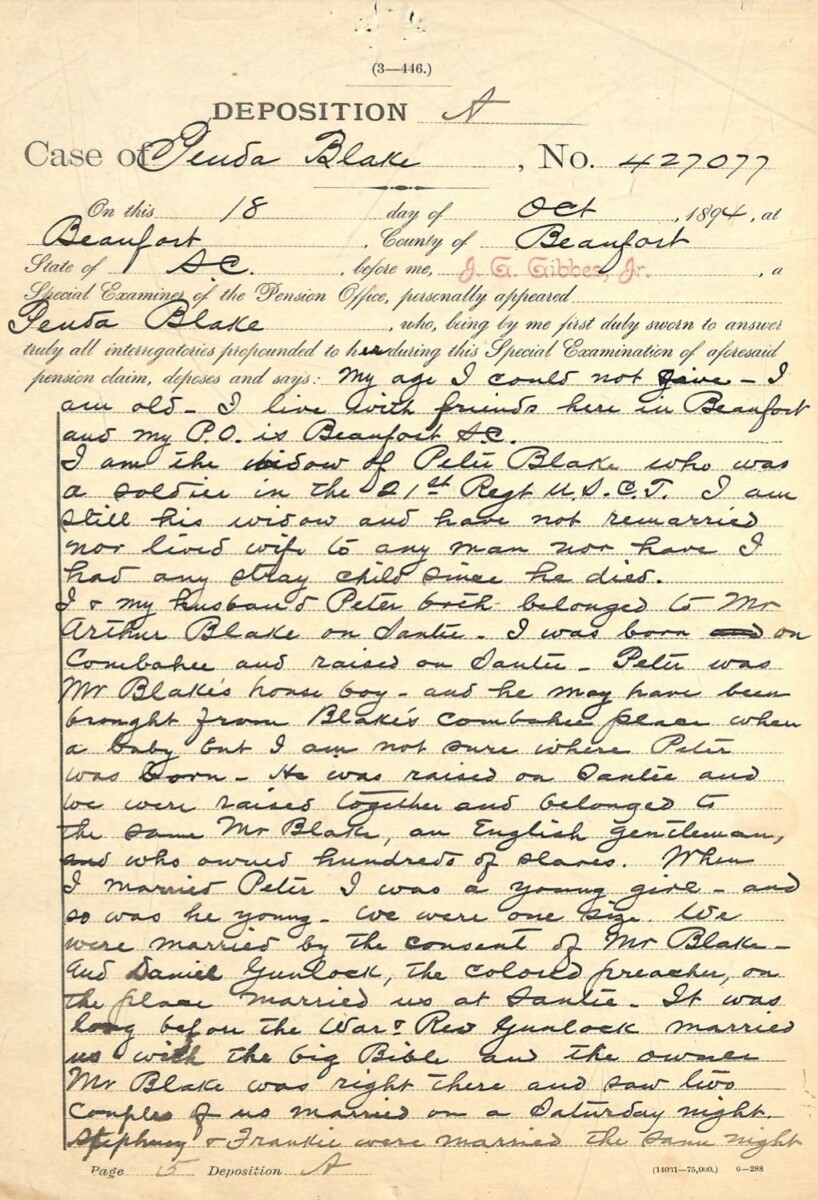 (3—446.)
DEPOSITION A
Case of Penda Blake, No. 427077
On this 18 day of Oct, 1894, at
Beaufort, County of Beaufort
State of S.C., before me, J. G. Gibbes, Jr., a
Special Examiner of the Pension Office, personally appeared
Penda Blake, who, being by me first duly sworn to answer
truly all interrogatories propounded to her during this Special Examination of aforesaid
pension claim, deposes and says: My age I could not give - I
am old - I live with friends here in Beaufort
and my P.O. is Beaufort S.C.
I am the widow of Peter Blake who was
a soldier in the 21st Regt U.S.C.T. I am
still his widow and have not remarried
nor lived wife to any man nor have I
had any stray child since he died.
I & my husband Peter both belonged to Mr
Arthur Blake on Santee - I was born on
Combahee and raised on Santee - Peter was
Mr Blake's house boy - and he may have been
brought from Blake's Combahee place when
a baby but I am not sure where Peter
was born - He was raised on Santee and
we were raised together and belonged to
the same Mr Blake, an English gentleman,
who owned hundreds of slaves. When
I married Peter I was a young girl - and
so was he young - We were one size. We
were married by the consent of Mr Blake -
and Daniel Gunlock, the colored preacher, on
the place married us at Santee - It was
long before the War & Rev Gunlock married
us with the big Bible and the owner
Mr Blake was right there and saw two
couples of us married on a Saturday night.
Stephney & Frankie were married the same night
Page 5 Deposition A
(14011—75,000.) 6—288